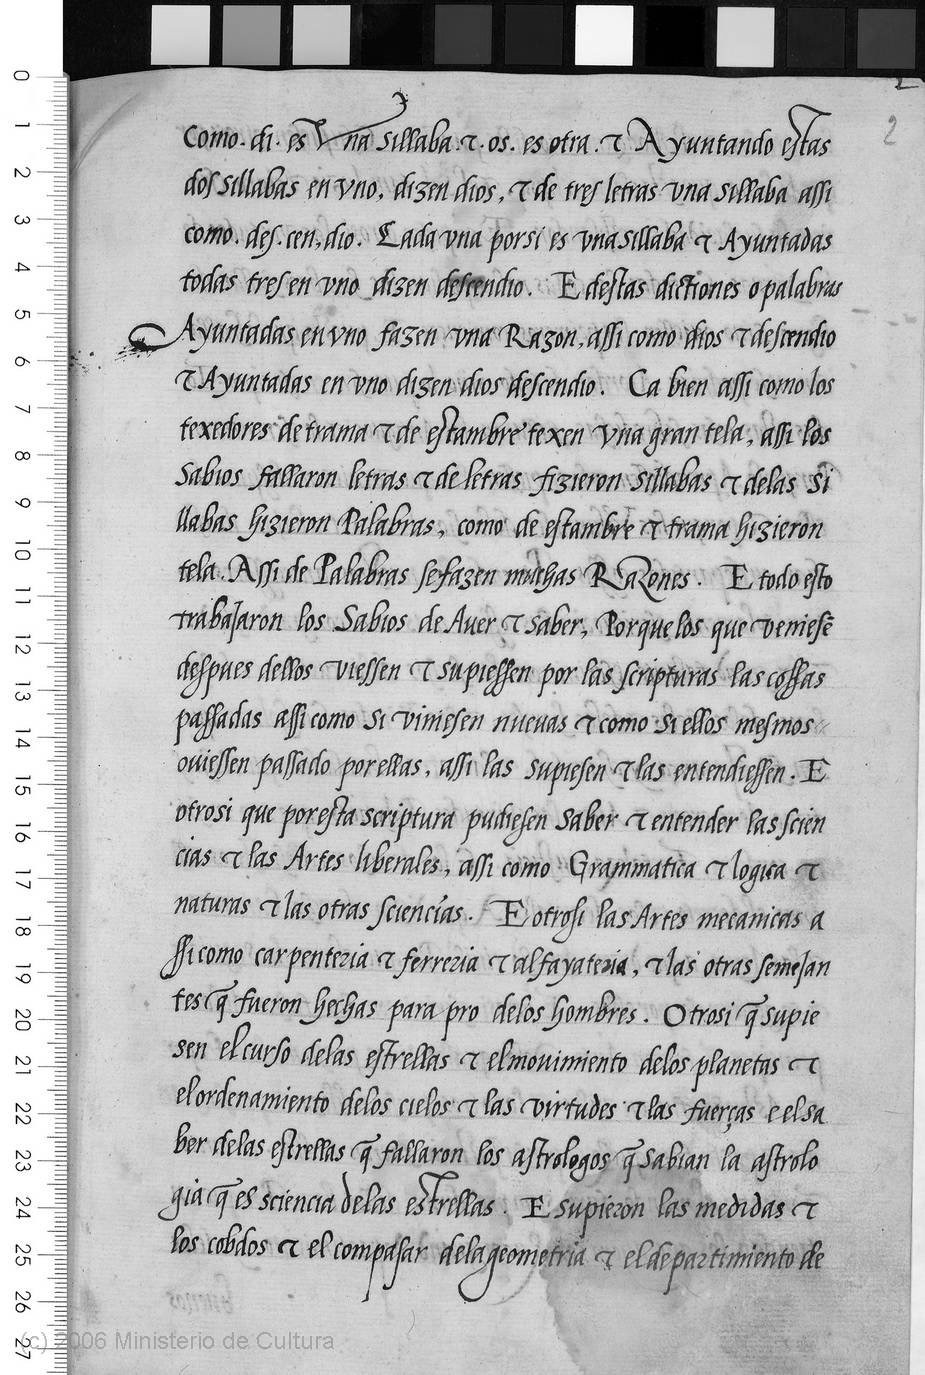 2
Como. di. es Vna sillaba. τ. os. es otra. τ Ayuntando estas
dos sillabas en vno, dizen dios, τ de tres letras vna sillaba assi
como. des. cen, dio. Cada vna porsi es vna sillaba τ Ayuntadas
todas tres en vno dizen descendio. E destas dictiones o palabras
Ayuntadas en vno fazen vna Razon, assi como dios τ descendio
τ Ayuntadas en vno dizen dios descendio. Ca bien assi como los
texedores de trama τ de estambre texen vna gran tela, assi los
Sabios fallaron letras τ de letras fizieron sillabas τ delas Si
llabas hizieron Palabras, como de estambre τ trama hizieron
tela. Assi de Palabras se fazen muchas Razones. E todo esto
trabajaron los Sabios de Auer τ saber, Porque los que veniesē
despues dellos viessen τ supiessen por las scripturas las cossas
passadas assi como si viniesen nuevas τ como si ellos mesmos
ouiessen passado por ellas, assi las supiesen τ las entendiessen. E
otrosi que por esta scriptura pudiesen saber τ entender las scien
cias τ las Artes liberales, assi como Grammatica τ logica τ
naturas τ las otras sciencias. E otrosi las Artes mecanicas a
ssi como carpenteria τ ferreria τ alfayateria, τ las otras semejan
tes q̄ fueron hechas para pro delos hombres. Otrosi q̄ supie
sen el curso delas estrellas τ el mouimiento delos planetas τ
el ordenamiento delos cielos τ las virtudes τ las fuerças e el sa
ber delas estrellas q̄ fallaron los astrologos q̄ sabian la astrolo
gia q̄ es sciencia delas estrellas. E supieron las medidas τ
los cobdos τ el compasar dela geometria τ el departimiento de
0
1
2
3
4
5
6
7
8
9
10
11
12
13
14
15
16
17
18
19
20
21
22
23
24
25
26
27
(c) 2006 Ministerio de Cultura